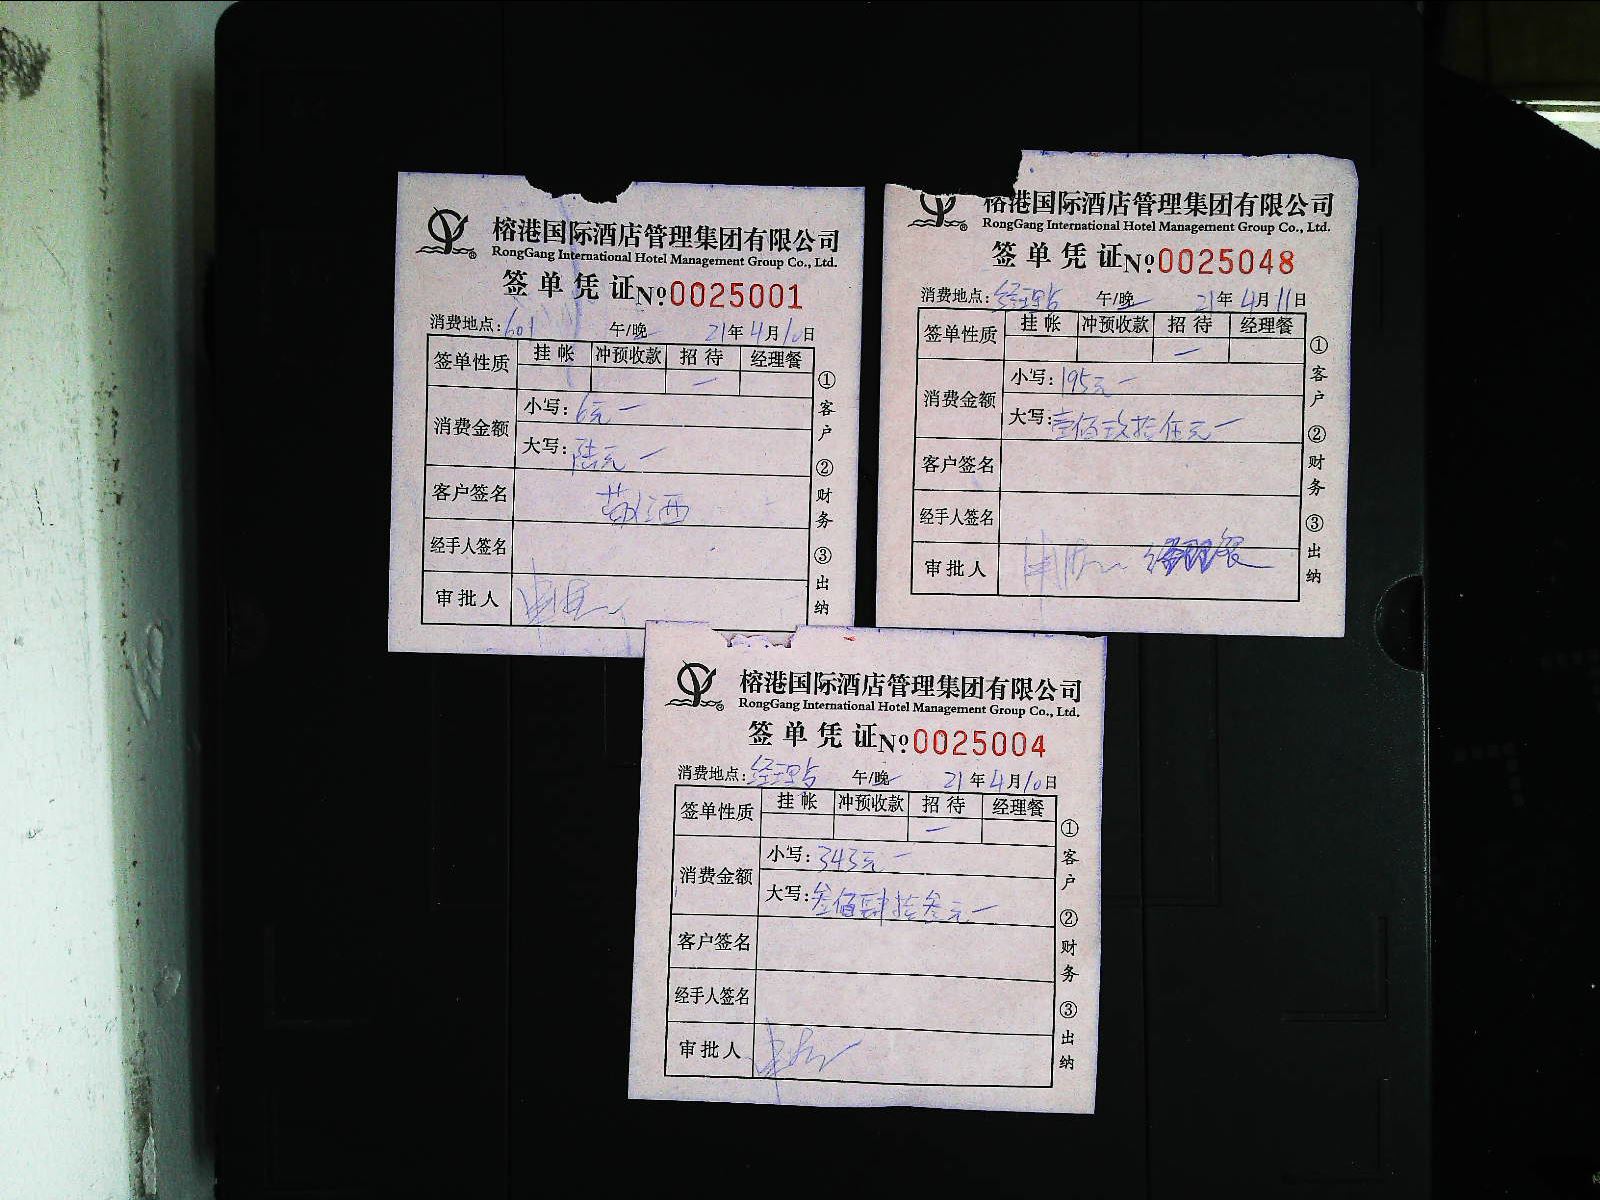 榕港国际酒店管理集团有限公司
RongGang International Hotel Management Group Co., Ltd.
签单凭证 №0025001
消费地点：601 午/晚 21年4月10日
签单性质 挂帐 冲预收款 招待 经理餐
消费金额 小写：6元
大写：陆元
客户签名
经手人签名
审批人
①客户 ②财务 ③出纳
榕港国际酒店管理集团有限公司
RongGang International Hotel Management Group Co., Ltd.
签单凭证 №0025048
消费地点：经理 午/晚 21年4月11日
签单性质 挂帐 冲预收款 招待 经理餐
消费金额 小写：195元
大写：壹佰玖拾伍元
客户签名
经手人签名
审批人 经理餐
①客户 ②财务 ③出纳
榕港国际酒店管理集团有限公司
RongGang International Hotel Management Group Co., Ltd.
签单凭证 №0025004
消费地点：经理 午/晚 21年4月10日
签单性质 挂帐 冲预收款 招待 经理餐
消费金额 小写：343元
大写：叁佰肆拾叁元
客户签名
经手人签名
审批人
①客户 ②财务 ③出纳